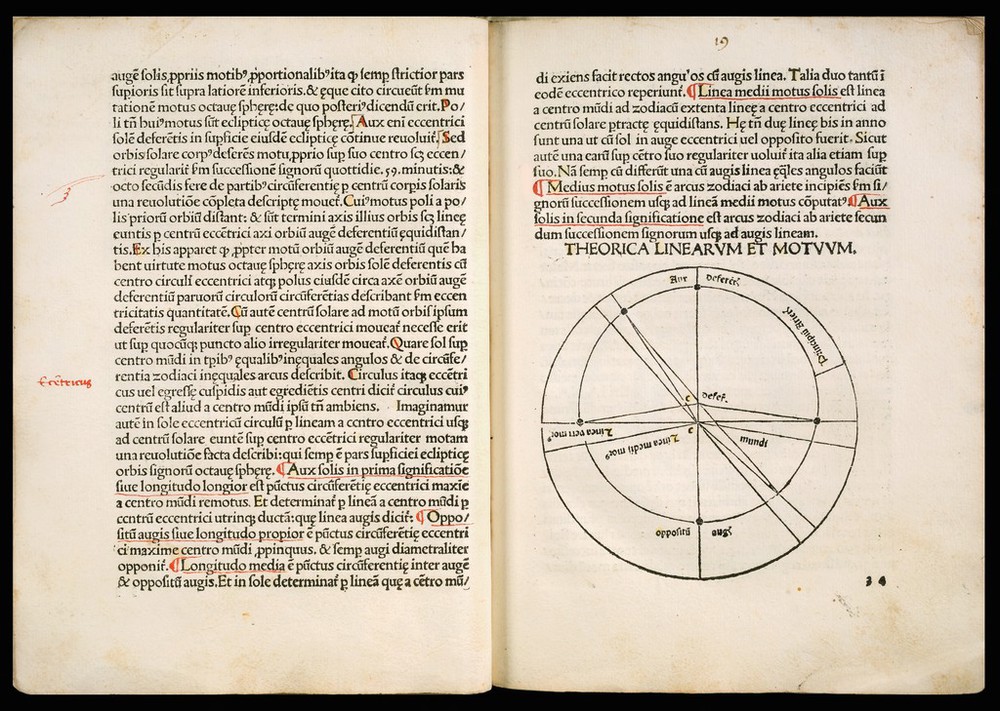 augē solis, ꝓpriis motib⁹, ꝓportionalib⁹ ita ꝙ semp strictior pars
supioris sit supra latiorē inferioris. & ęque cito circueūt ẜm mu
tationē motus octauę sphęrę: de quo posteri⁹ dicendū erit. Po/
li tn̄ hui⁹ motus sūt eclipticę octauę sphęrę. Aux eni eccentrici
solē deferētis in supficie eiusdē eclipticę cōtinue reuoluit᷑. Sed
orbis solare corp⁹ deferēs motu, ꝓprio sup suo centro scꝫ eccen/
trici regularit᷑ ẜm successionē signorū quottidie. 59. minutis: &
octo secūdis fere de partib⁹ circūferentię p centrū corpis solaris
una reuolutiōe cōpleta descriptę mouet᷑. Cui⁹ motus poli a po/
lis priorū orbiū distant: & sūt termini axis illius orbis scꝫ lineę
euntis p centrū eccētrici axi orbiū augē deferentiū ęquidistan/
tis. Ex his apparet ꝙ, ꝓpter motū orbiū augē deferentiū quē ha
bent uirtute motus octauę sphęrę axis orbis solē deferentis cū
centro circuli eccentrici atqꝫ polus eiusdē circa axē orbiū augē
deferentiū paruorū circulorū circūferētias describant ẜm eccen
tricitatis quantitatē. Cū autē centrū solare ad motū orbis ipsum
deferētis regulariter sup centro eccentrici moueat᷑ necesse erit
ut sup quocūqꝫ puncto alio irregulariter moueat᷑. Quare sol sup
centro mūdi in tpib⁹ ęqualib⁹ inęquales angulos & de circūfe/
rentia zodiaci inęquales arcus describit. Circulus itaqꝫ eccētri
Eccētricus
cus uel egressę cuspidis aut egrediētis centri dicit᷑ circulus cui⁹
centrū est aliud a centro mūdi ipsū tn̄ ambiens. Imaginamur
autē in sole eccentricū circulū p lineam a centro eccentrici usqꝫ
ad centrū solare euntē sup centro eccētrici regulariter motam
una reuolutiōe facta describi: qui semp ē pars supficiei eclipticę
orbis signorū octauę sphęrę. ¶Aux solis in prima significatiōe
siue longitudo longior est pūctus circūferētię eccentrici maxie
a centro mūdi remotus. Et determinat᷑ p lineā a centro mūdi p
centrū eccentrici utrinqꝫ ductā: quę linea augis dicit᷑: ¶Oppo/
sitū augis siue longitudo propior ē pūctus circūferētię eccentri
ci maxime centro mūdi, ꝓpinquus. & semp augi diametraliter
opponit᷑. ¶Longitudo media ē pūctus circūferentię inter augē
& oppositū augis. Et in sole determinat᷑ p lineā quę a cētro mū/
19
di exiens facit rectos angulos cū augis linea. Talia duo tantū ī
eodē eccentrico reperiunt᷑. ¶Linea medii motus solis est linea
a centro mūdi ad zodiacū extenta lineę a centro eccentrici ad
centrū solare ptractę ęquidistans. Hę tn̄ duę lineę bis in anno
sunt una ut cū sol in auge eccentrici uel opposito fuerit. Sicut
autē una earū sup cētro suo regulariter uoluit᷑ ita alia etiam sup
suo. Nā semp cū differūt una cū augis linea ęq̄les angulos faciūt
¶Medius motus solis ē arcus zodiaci ab ariete incipiēs ẜm si/
gnorū successionem usqꝫ ad lineā medii motus cōputat⁹. ¶Aux
solis in secunda significatione est arcus zodiaci ab ariete secun
dum successionem signorum usqꝫ ad augis lineam.
THEORICA LINEARVM ET MOTVVM.
Aux deferētꝭ
Principiū arietꝭ
c defeꝝ.
Linea veri mot⁹
Linea medii mot⁹
c
mundi
oppositū augꝭ
34